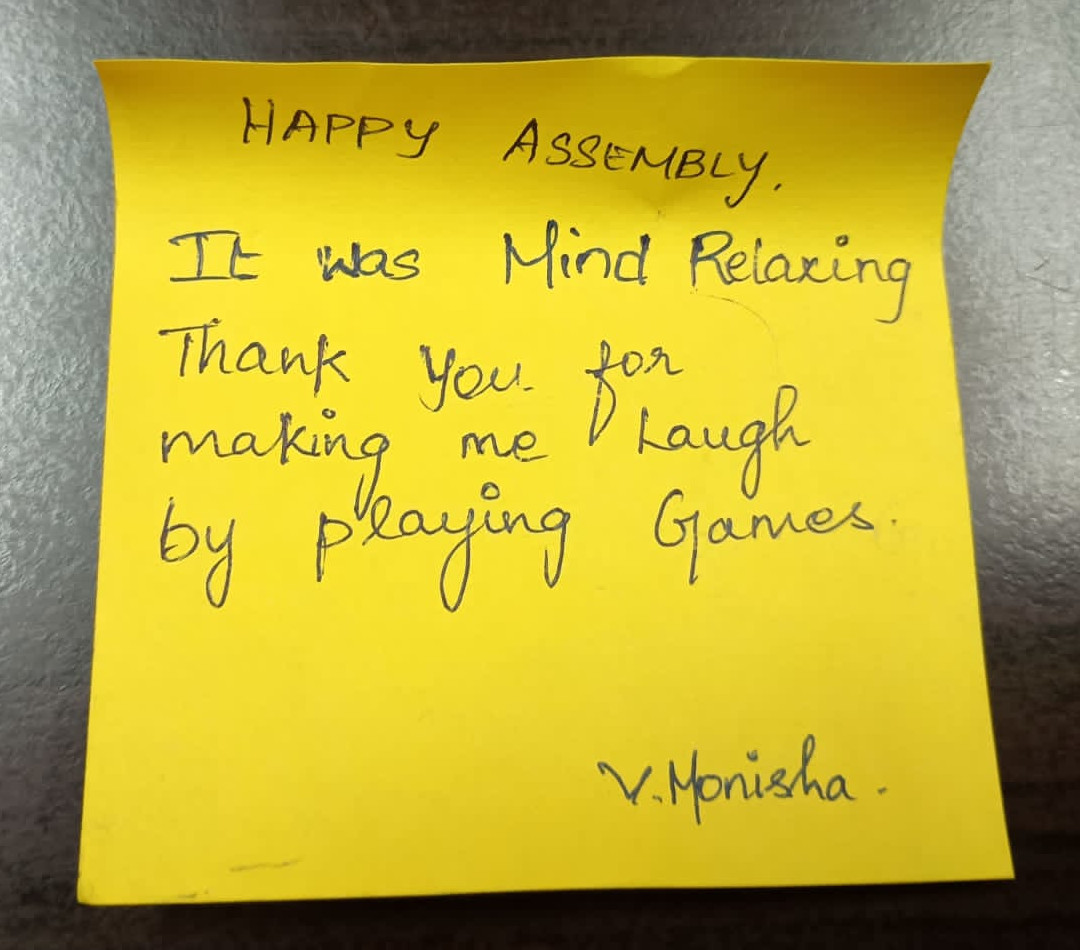 HAPPY ASSEMBLY.
It was Mind Relaxing
Thank you for
making me Laugh
by playing Games.
V. Monisha.